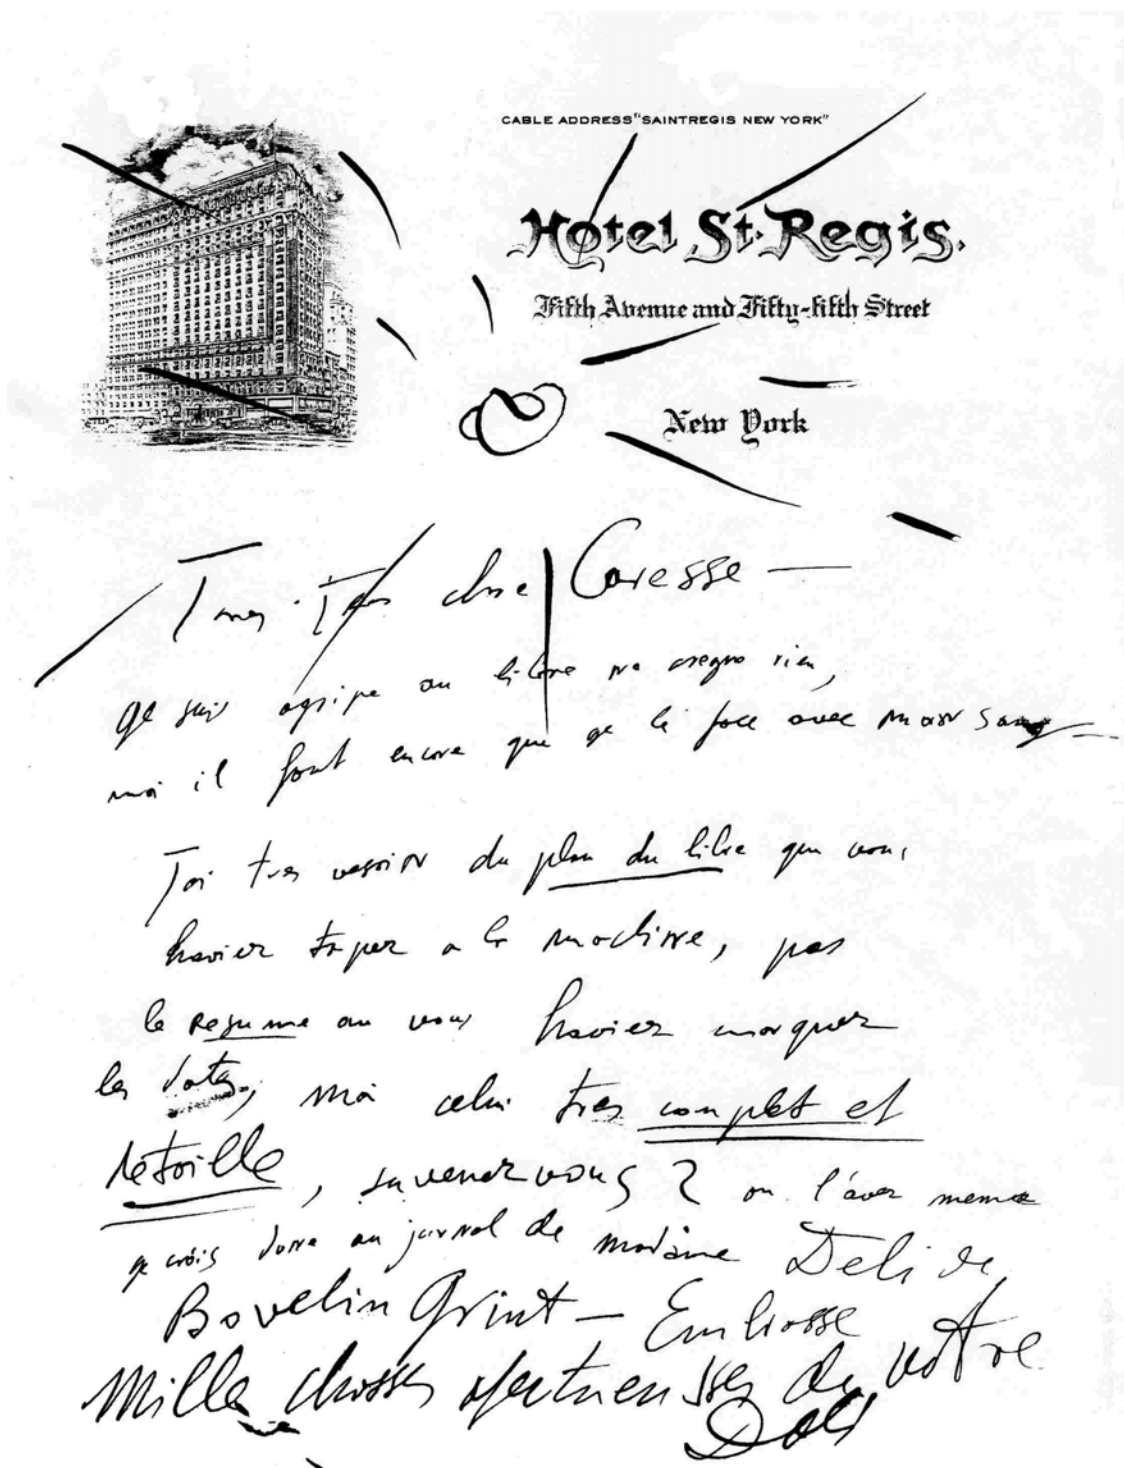 CABLE ADDRESS "SAINTREGIS NEW YORK"
Hotel St. Regis.
Fifth Avenue and Fifty-fifth Street
New York
Tres Tres chre Caresse —
ge suis au libre ne rien,
mai il fout encore que ge le face avec
Jai tres vesoin du plan du libre que vous
havier taper a la machine, pas
le resume ou vous havier marquer
les dates, mai celui tres complet et
detaille, suvenez vous? on l'avez meme
ge crois done au jurnal de madame Deli de
Bovelin Grint — Embrasse
Mille chosses afectueusses de votre
Dali